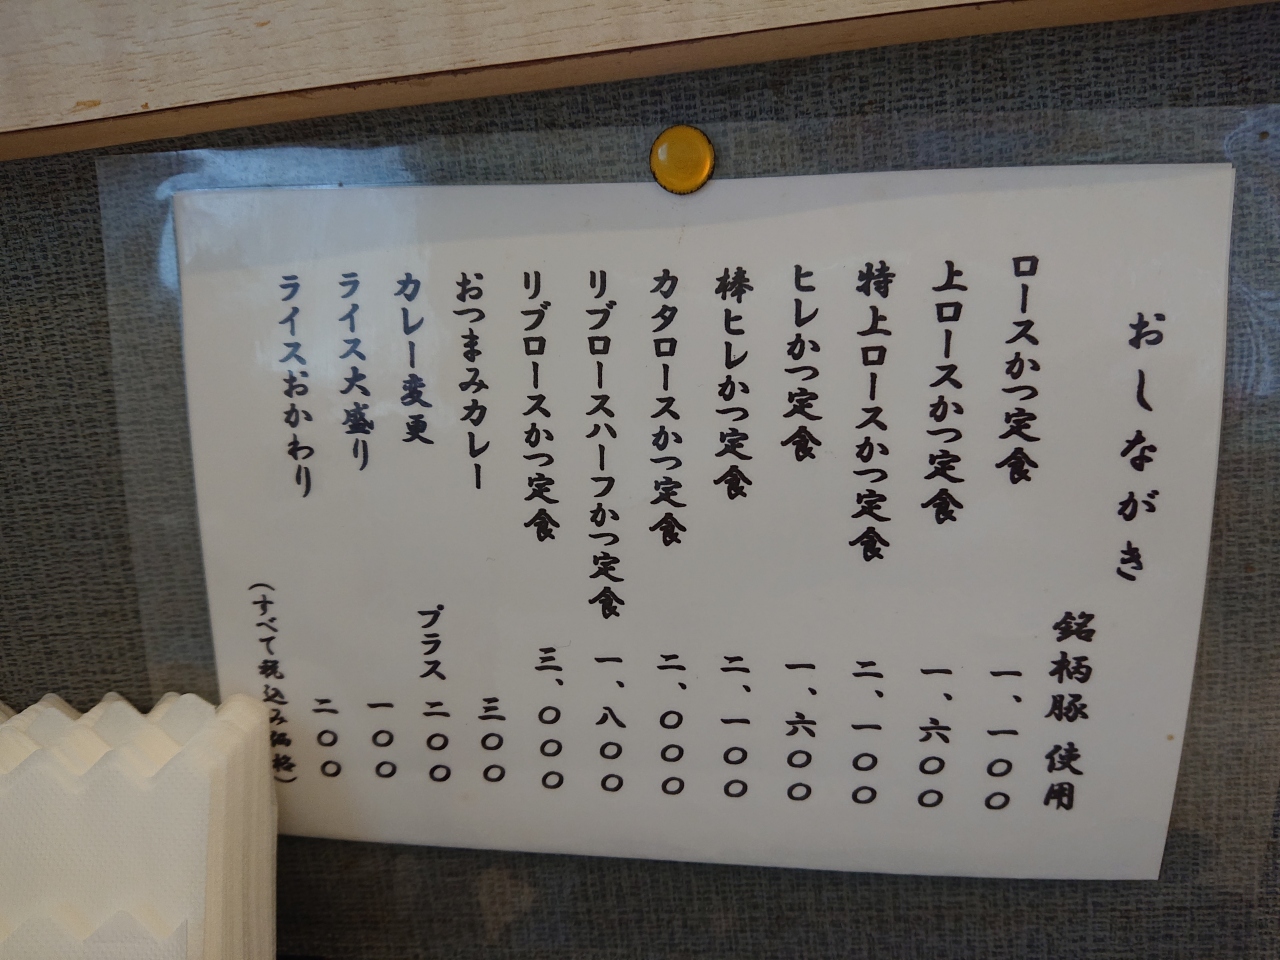 おしながき
銘柄豚 使用
ロースかつ定食 一、一〇〇
上ロースかつ定食 一、六〇〇
特上ロースかつ定食 二、一〇〇
ヒレかつ定食 一、六〇〇
棒ヒレかつ定食 二、一〇〇
カタロースかつ定食 二、〇〇〇
リブロースハーフかつ定食 一、八〇〇
リブロースかつ定食 三、〇〇〇
おつまみカレー 三〇〇
カレー変更 プラス 二〇〇
ライス大盛り 一〇〇
ライスおかわり 二〇〇
(すべて税込み価格)